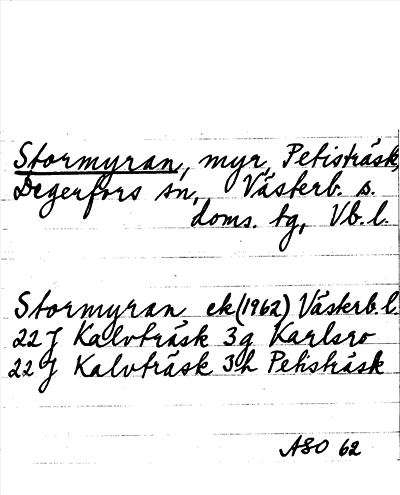 Stormyran, myr, Petisträsk,
Degerfors sn, Västerb. s.
doms. tg, Vb. l.
Stormyran ek (1962) Västerb. l.
22 J Kalvträsk 3g Karlsro
22 J Kalvträsk 3h Petisträsk
ASO 62